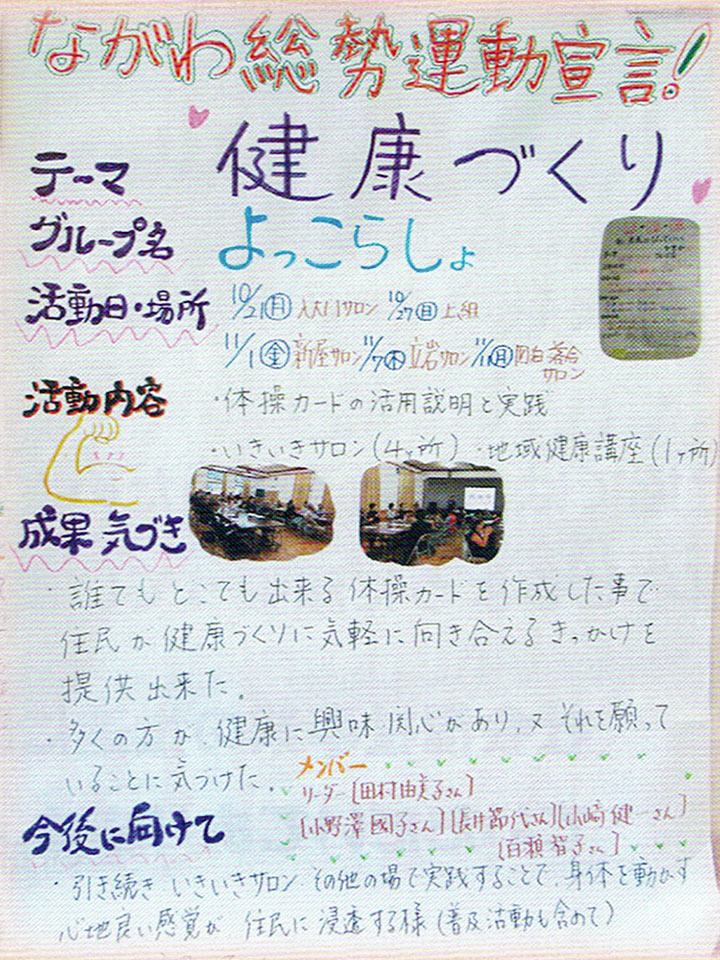 ながわ総勢運動宣言!
テーマ 健康づくり
グループ名 よっこらしょ
活動日・場所 10/21(月) 入大門サロン 10/27(日) 上組
11/1(金) 新屋サロン 11/7(木) 立岩サロン (月) 落合
サロン
活動内容 ・体操カードの活用説明と実践
・いきいきサロン(4ヶ所) ・地域健康講座(1ヶ所)
成果 気づき
・誰でもどこでも出来る体操カードを作成した事で
住民が健康づくりに気軽に向き合えるきっかけを
提供出来た。
・多くの方が、健康に興味関心があり、又それを願って
いることに気づけた。
メンバー
リーダー[田村由美子さん]
[小野澤國子さん][長井節代さん][山崎健一さん]
[百瀬智子さん]
今後に向けて
・引き続きいきいきサロン、その他の場で実践することで、身体を動かす
心地良い感覚が住民に浸透する様(普及活動も含めて)